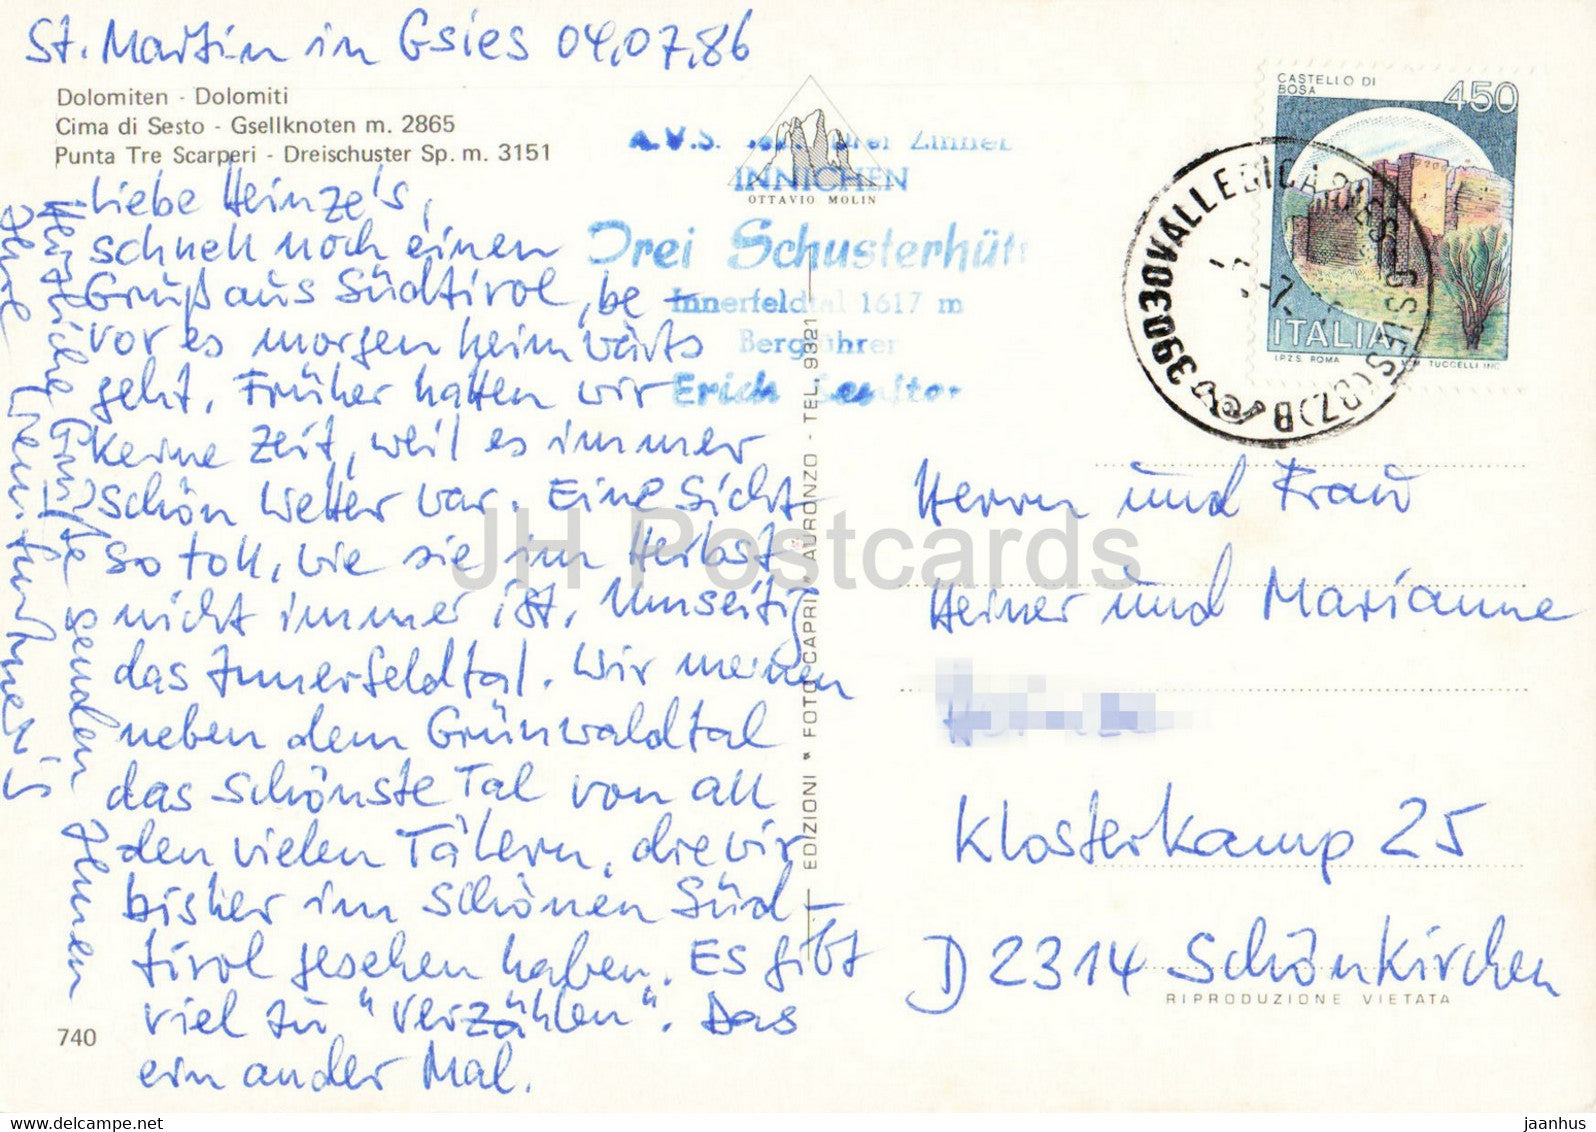 St. Martin in Gsies 04.07.86
Dolomiten - Dolomiti
Cima di Sesto - Gsellknoten m. 2865
Punta Tre Scarperi - Dreischuster Sp. m. 3151
Liebe Heinze's,
schnell noch einen
Gruß aus Südtirol, be-
vor es morgen heimwärts
geht. Früher hatten wir
keine Zeit, weil es immer
schön Wetter war. Eine Sicht
so toll, wie sie im Herbst
nicht immer ist. Umseitig
das Innerfeldtal. Wir meinen
neben dem Grünwaldtal
das schönste Tal von all
den vielen Tälern, die wir
bisher im schönen Süd-
tirol gesehen haben. Es gibt
viel zu "verzählen". Das
ein ander Mal.
Herzliche Grüße senden Ihnen
Ihre
740
A.V.S. Drei Zinnen
INNICHEN
OTTAVIO MOLIN
Drei Schusterhütt
Innerfeldtal 1617 m
Bergführer
Erich
EDIZIONI * FOTO CAPRI * AURONZO - TEL. 9321
CASTELLO DI
BOSA
450
ITALIA
I.P.Z.S. ROMA
TUCCELLI INC.
39030 VALLE DI CASIES (BZ) B
Herrn und Frau
Heiner und Marianne
Klosterkamp 25
D 2314 Schönkirchen
RIPRODUZIONE VIETATA
JH Postcards
www.delcampe.net
jaanhus